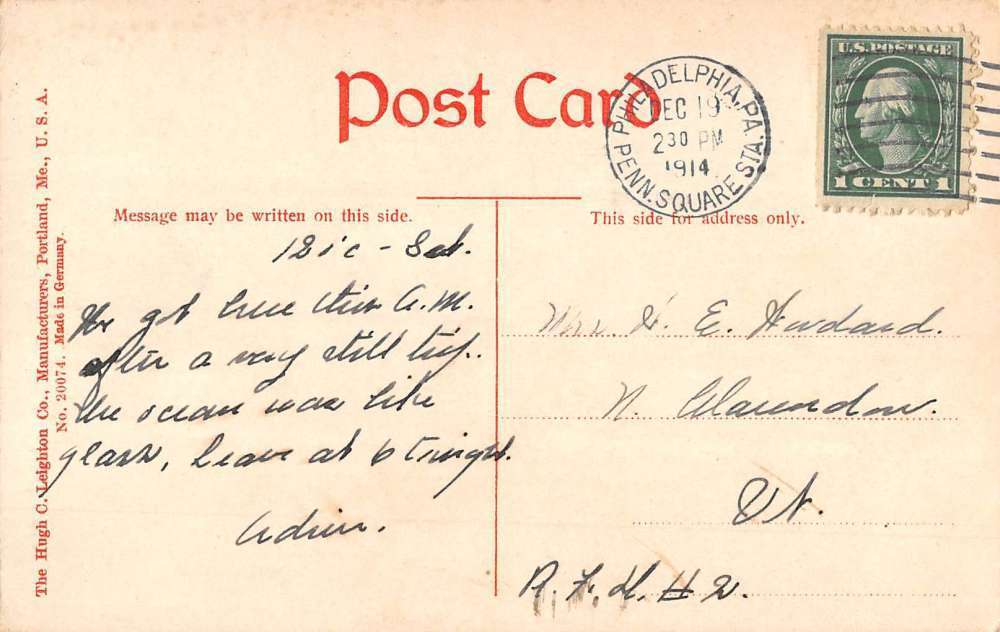 Post Card
PHILADELPHIA, PA.
DEC 19
2 30 PM
1914
PENN. SQUARE STA.
U.S. POSTAGE
1 CENT 1
Message may be written on this side.
This side for address only.
12 i'c - Sat.
We got here this A.M.
after a very still trip.
the ocean was like
glass, leave at 6 tonight.
H. E. Goddard.
N. Clarendon.
Vt.
R. F. D. # 2.
The Hugh C. Leighton Co., Manufacturers, Portland, Me., U. S. A.
No. 20074. Made in Germany.